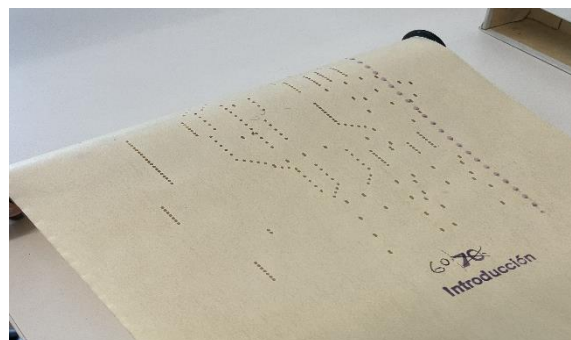 60 78
Introducción